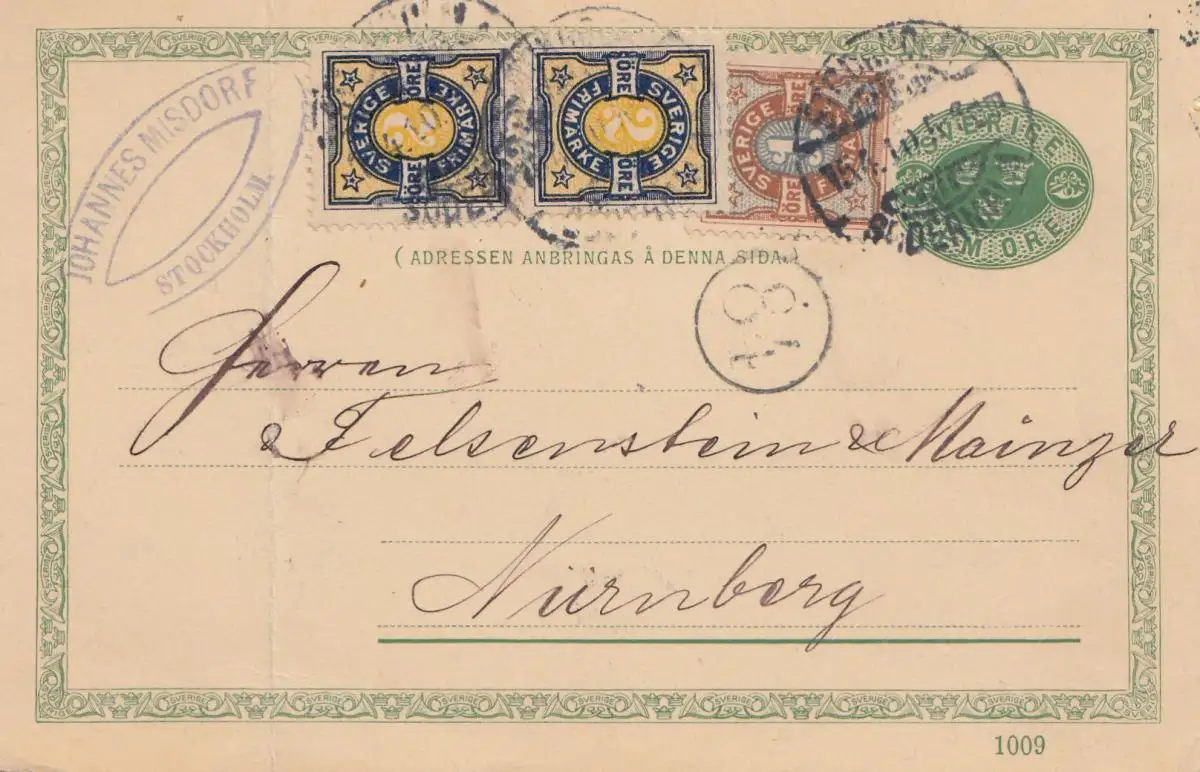 JOHANNES MISDORF
STOCKHOLM.
SVERIGE
FRIMÄRKE
2
ÖRE
ÖRE
SVERIGE
FRIMÄRKE
2
ÖRE
ÖRE
SVERIGE
1
ÖRE
ÖRE
SVERIGE
FEM ÖRE
(ADRESSEN ANBRINGAS Å DENNA SIDA.)
Herren
Felsenstein & Mainzer
Nürnberg
1009